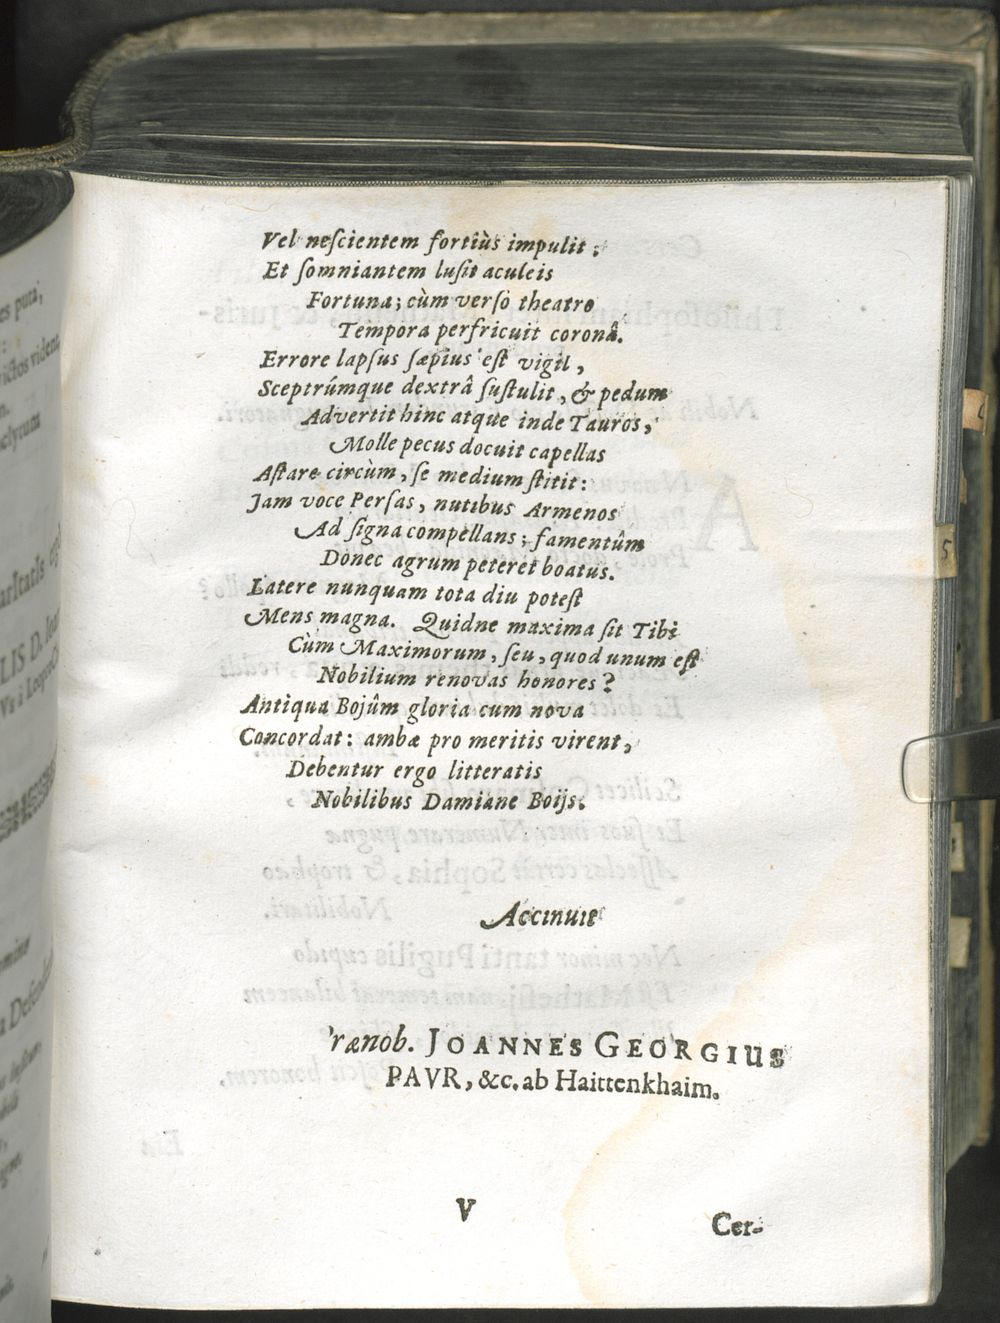 Vel neſcientem fortiùs impulit;
Et ſomniantem luſit aculeis
Fortuna; cùm verſo theatro
Tempora perfricuit coronâ.
Errore lapſus ſæpius eſt vigil,
Sceptrúmque dextrâ ſuſtulit, & pedum
Advertit hinc atque inde Tauros,
Molle pecus docuit capellas
Aſtare circùm, ſe medium ſtitit:
Jam voce Perſas, nutibus Armenos
Ad ſigna compellans; famentûm
Donec agrum peteret boatus.
Latere nunquam tota diu poteſt
Mens magna. Quidne maxima ſit Tibi
Cùm Maximorum, ſeu, quod unum eſt
Nobilium renovas honores?
Antiqua Bojûm gloria cum nova
Concordat: ambæ pro meritis virent,
Debentur ergo litteratis
Nobilibus Damiane Boijs.
Accinuit
rænob. JOANNES GEORGIUS
PAVR, &c. ab Haittenkhaim.
V
Cer-